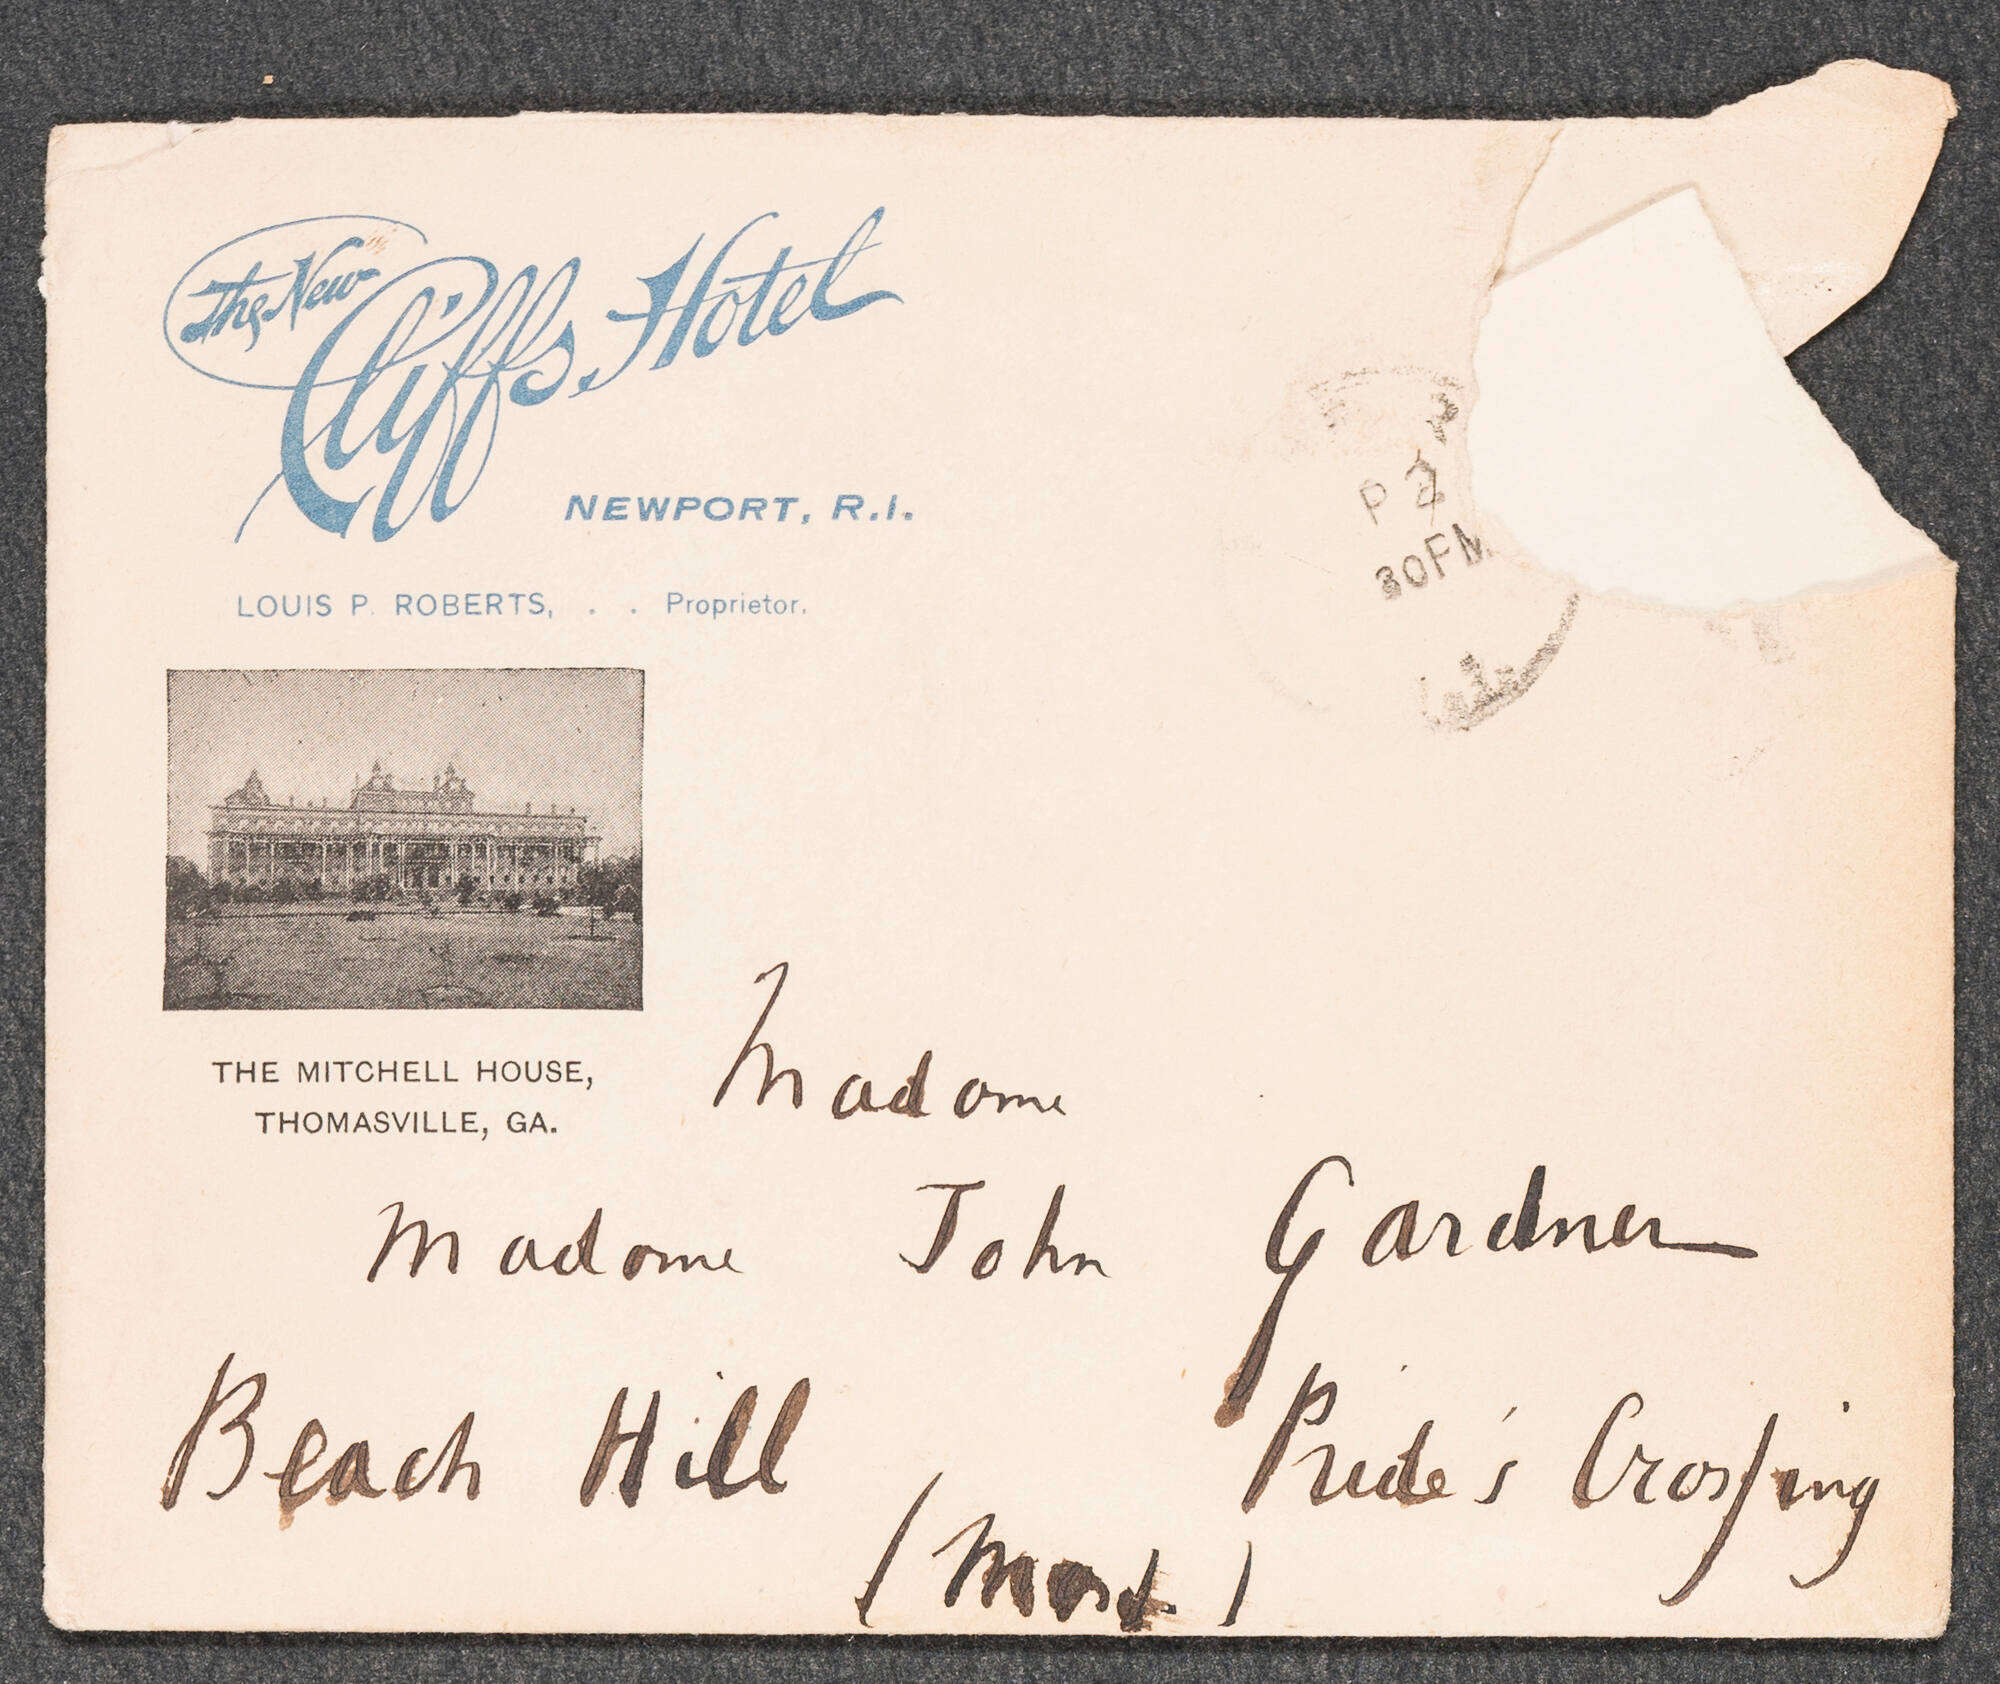 The New
Cliffs Hotel
NEWPORT, R.I.
LOUIS P. ROBERTS, . . Proprietor.
P 2
30PM
THE MITCHELL HOUSE,
THOMASVILLE, GA.
Madame
Madame John Gardner
Beach Hill Pride's Crossing
(Mass.)